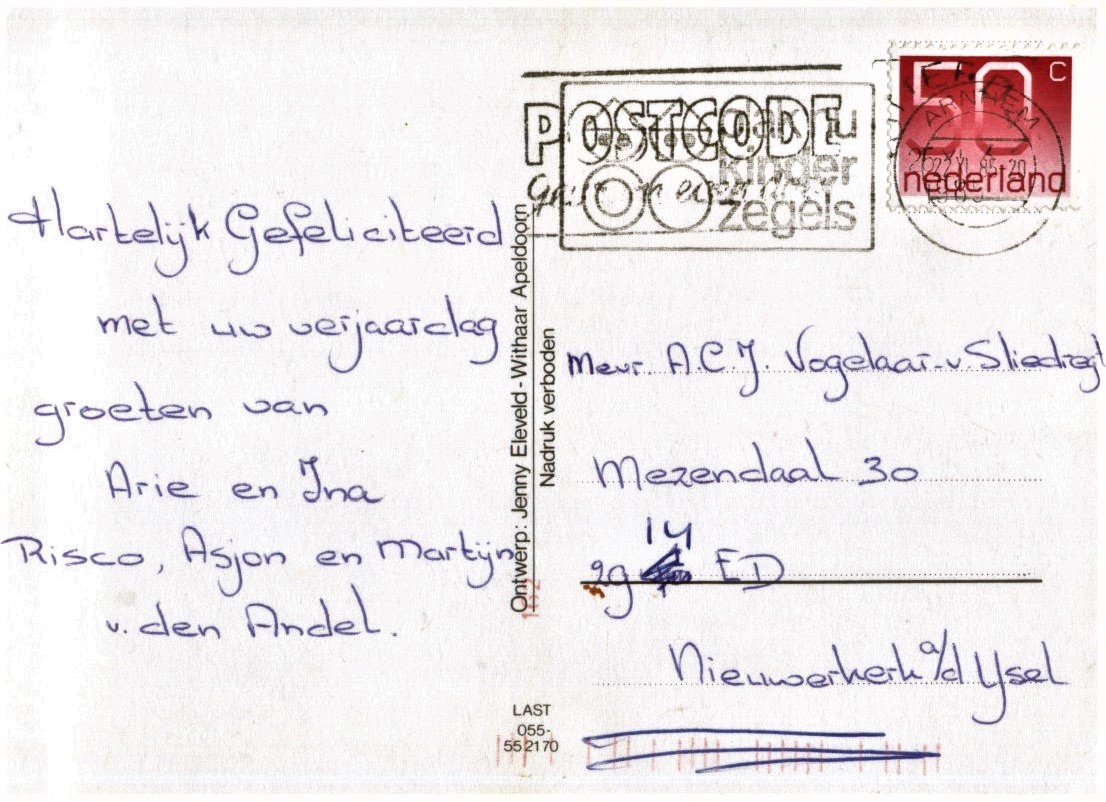 Hartelijk Gefeliciteerd
met uw verjaardag
groeten van
Arie en Ina
Risco, Asjon en Martijn
v. den Andel.
Ontwerp: Jenny Eleveld - Withaar Apeldoorn
Nadruk verboden
LAST
055-
552170
POSTCODE
kinder
zegels
50 C
ARNHEM
nederland
Mevr. A.C.J. Vogelaar-v Sliedregt
Mezendaal 30
2914 ED
Nieuwerkerk a/d Ysel